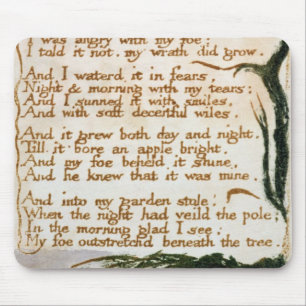 I was angry with my foe:
I told it not, my wrath did grow.
And I waterd it in fears,
Night & morning with my tears:
And I sunned it with smiles,
And with soft deceitful wiles.
And it grew both day and night,
Till it bore an apple bright,
And my foe beheld it shine,
And he knew that it was mine.
And into my garden stole,
When the night had veild the pole;
In the morning glad I see,
My foe outstretchd beneath the tree.